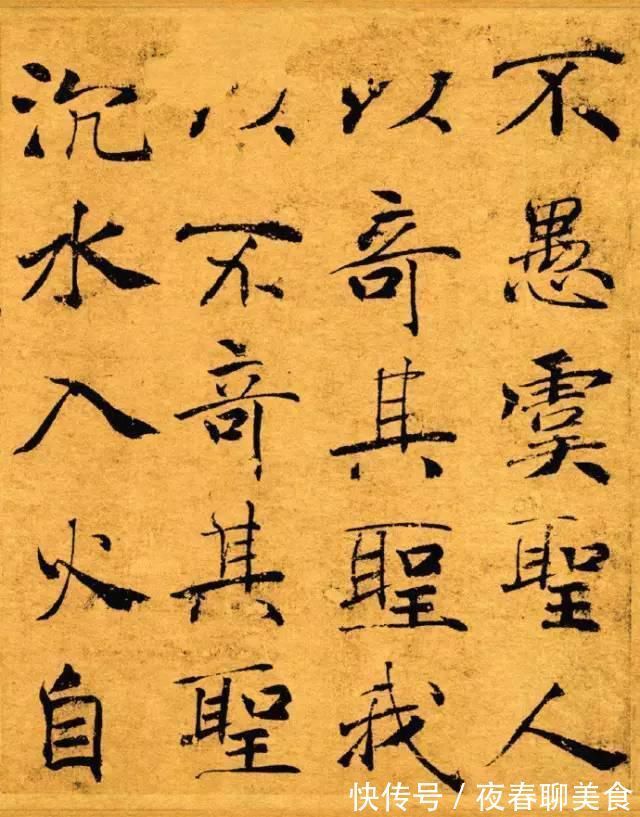 不愚虞聖人
以奇其聖我
以不奇其聖
沉水入火自
快传号/夜春聊美食